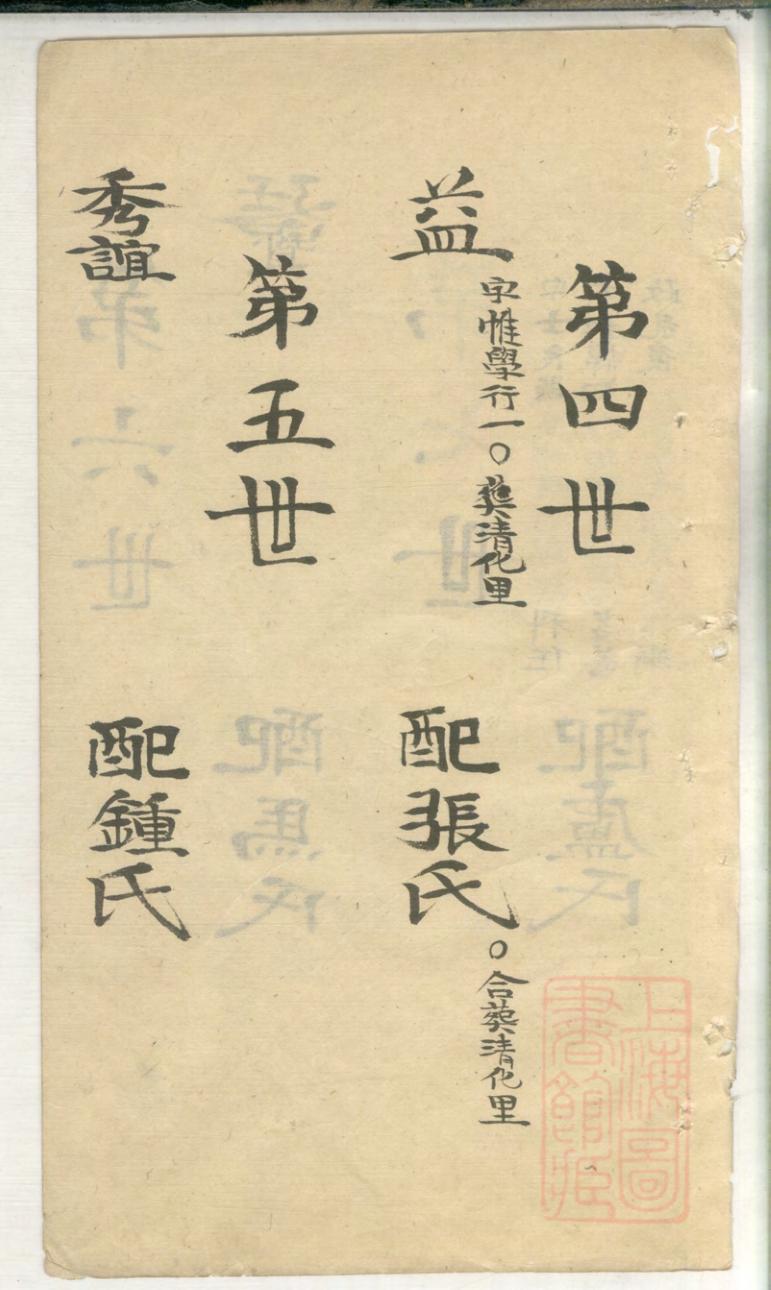 第四世
益 字惟學行一○葬清化里 配張氏 ○合葬清化里
第五世
秀誼 配鍾氏
上海圖
書館藏